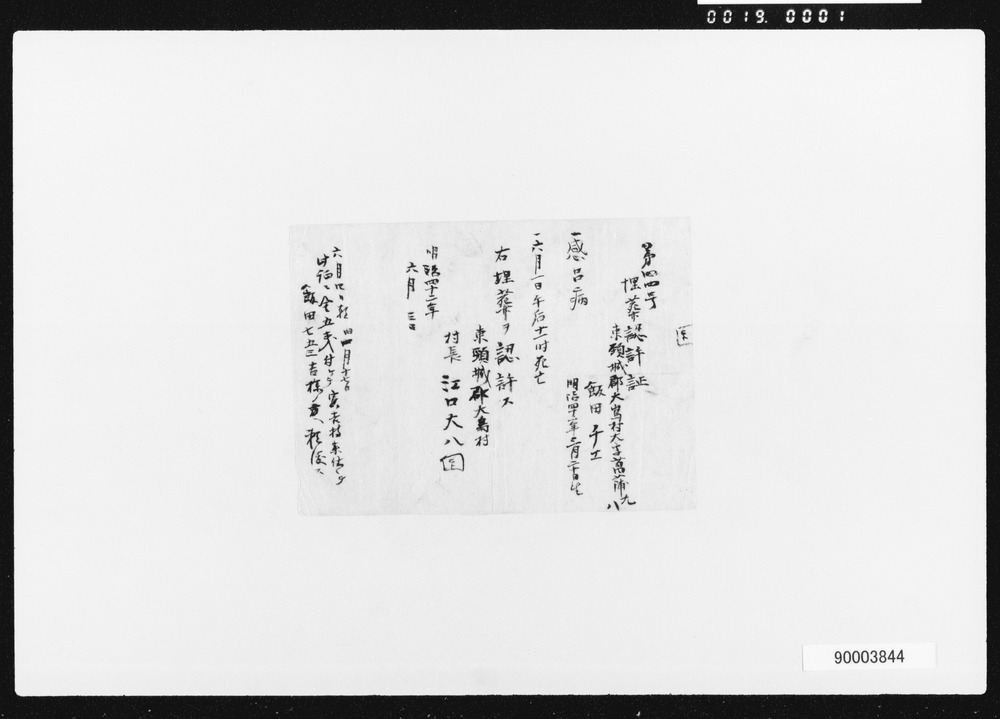 0019.0001
第四四号
埋葬認許証
東頸城郡大島村大字菖蒲九八
飯田チエ
明治四十一年二月二十日生
一感冒病
一六月一日午后十二時死亡
右埋葬ヲ認許ス
東頸城郡大島村
村長 江口大八 印
明治四十二年
六月 三日
六月
飯田七五三吉様
90003844